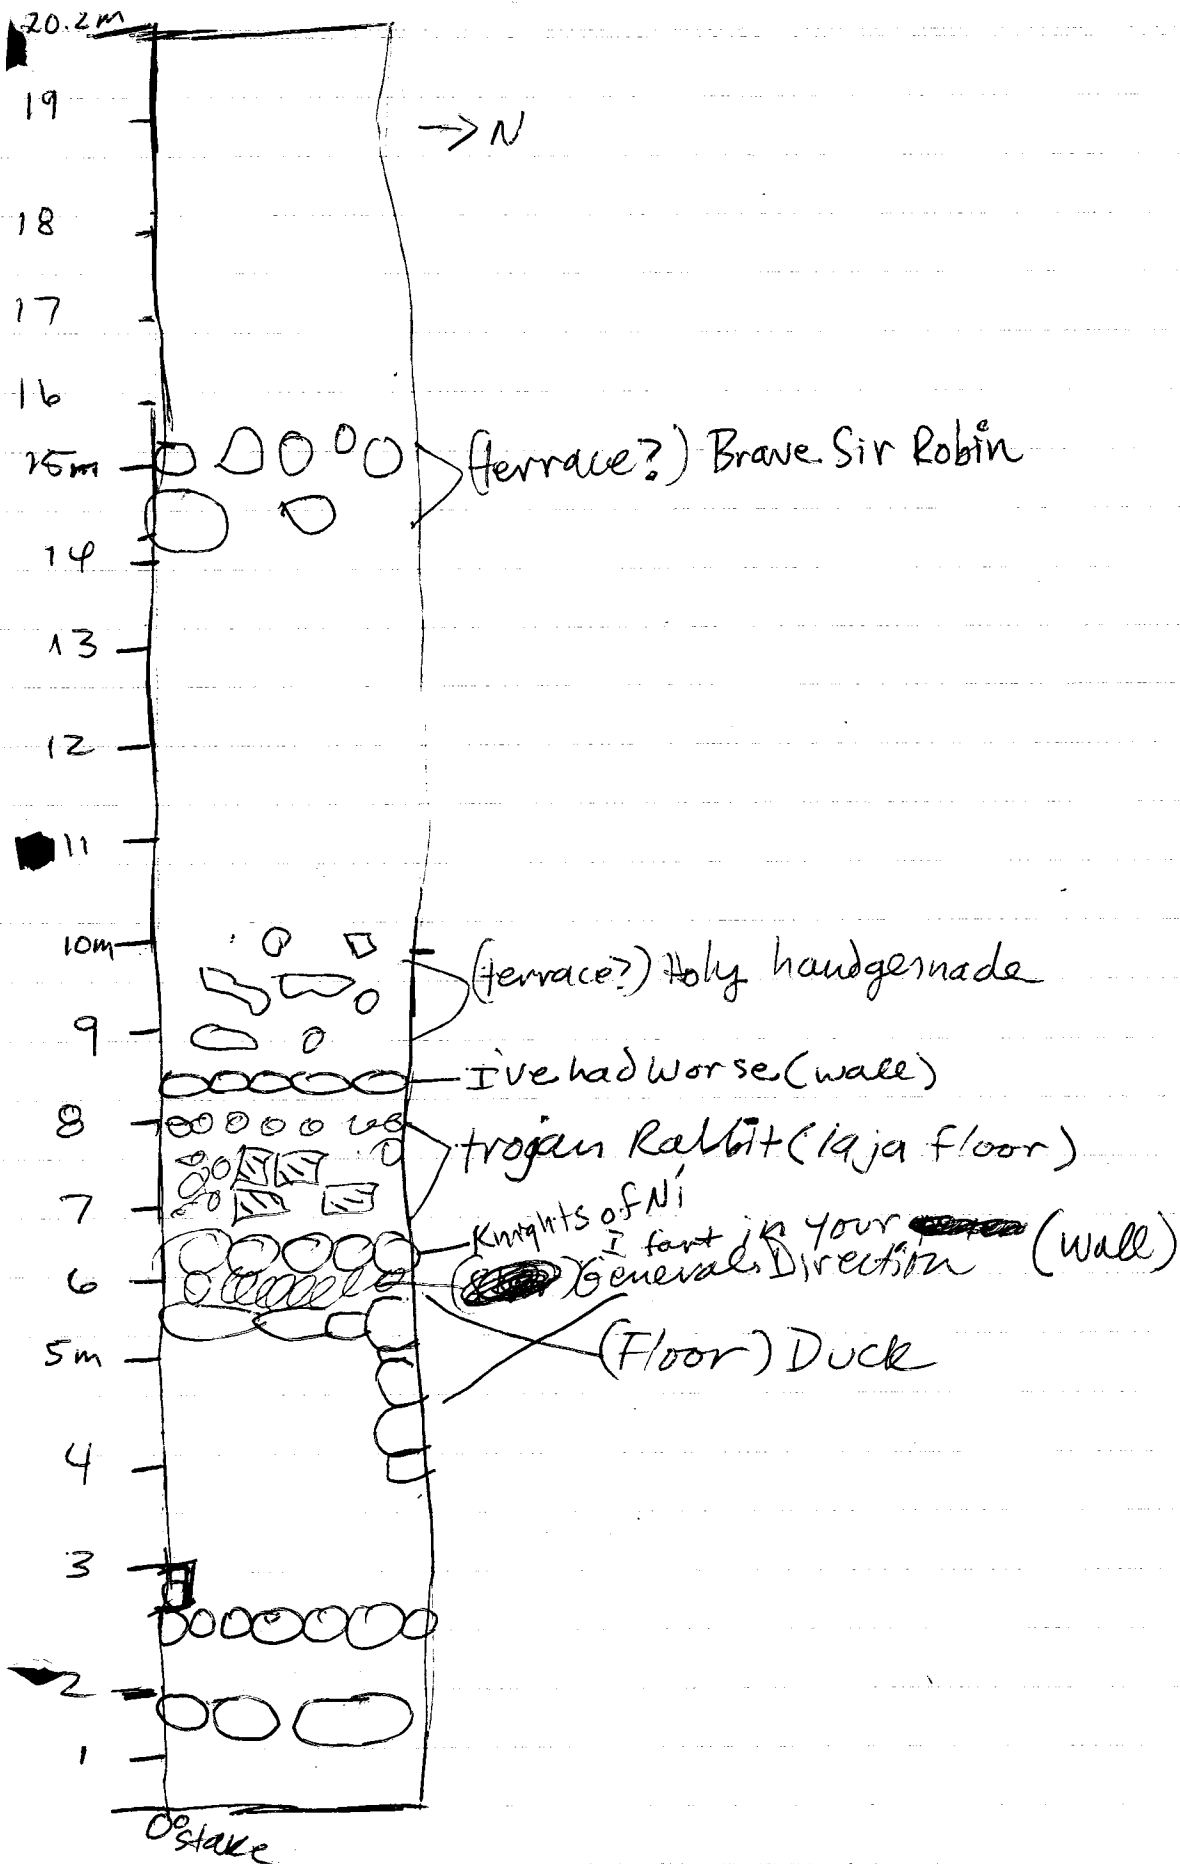 20.2m
19
→ N
18
17
16
15m
(terrace?) Brave Sir Robin
14
13
12
11
10m
(terrace?) Holy handgernade
9
I've had worse (wall)
8
trojan Rabbit (laja floor)
7
Knights of Ni
I fart in your
General Direction (wall)
6
(Floor) Duck
5m
4
3
2
1
0° stake